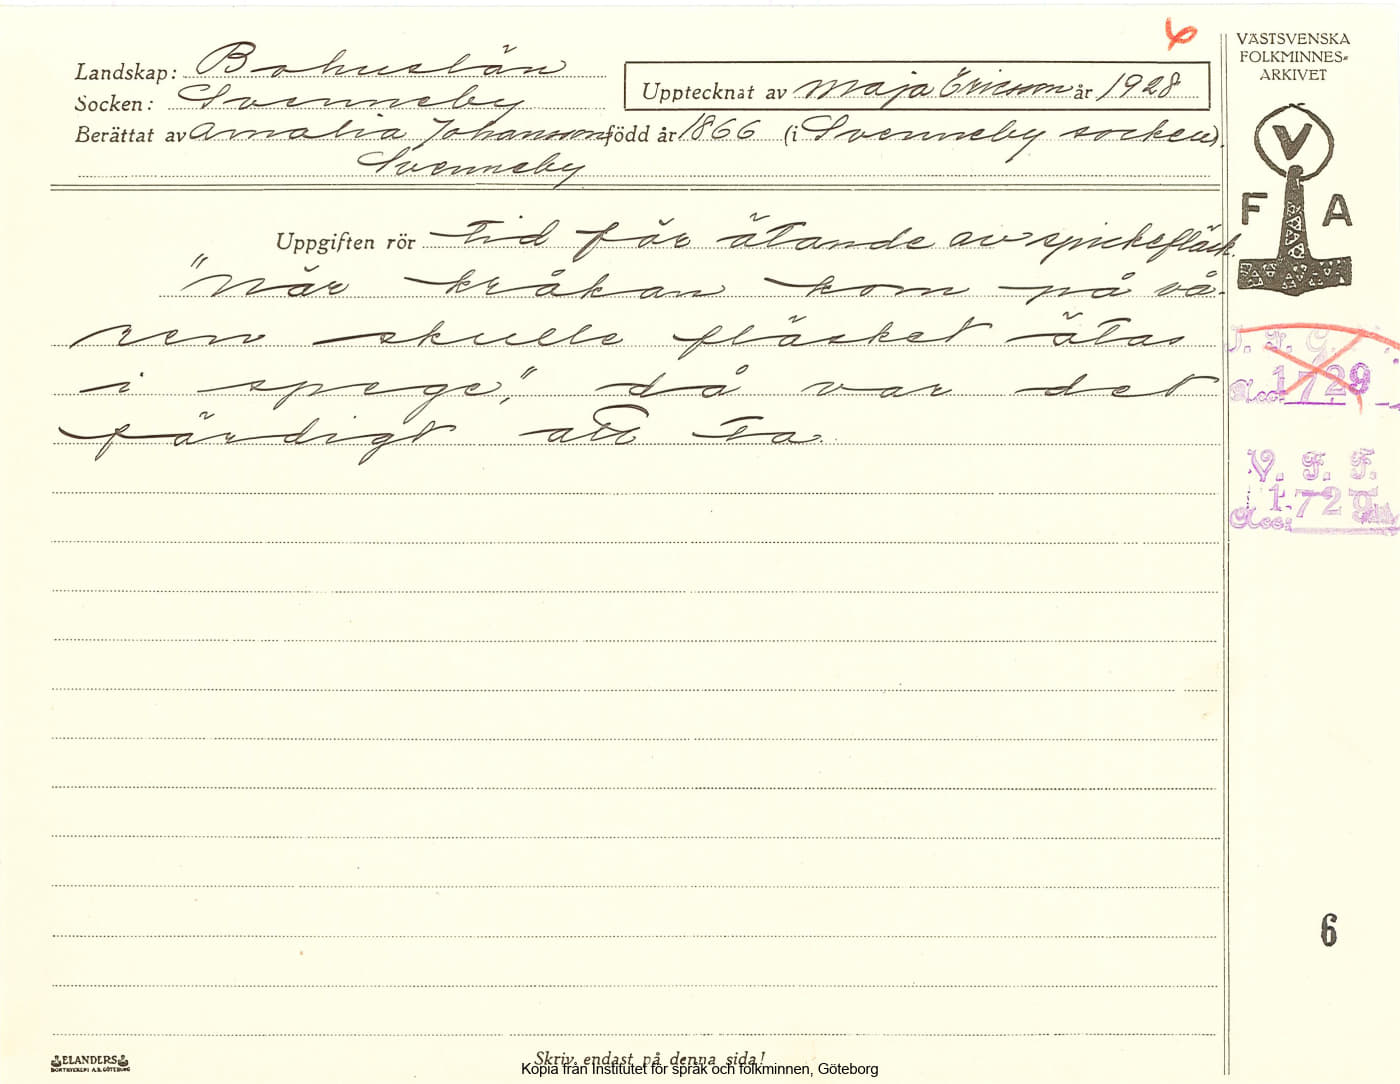 6
VÄSTSVENSKA
FOLKMINNES=
ARKIVET
Landskap: Bohuslän
Socken: Svenneby
Upptecknat av Maja Ericsson år 1928
Berättat av Amalia Johansson född år 1866 (i Svenneby socken).
Svenneby
V
F A
Uppgiften rör Tid för ätande av spickefläsk.
"När kråkan kom på vå-
ren skulle fläsket ätas
i spege", då var det
färdigt att ta.
Acc. 1729
V. F. F.
Acc: 1729
6
ELANDERS
BOKTRYCKERI A.B. GÖTEBORG
Skriv endast på denna sida!
Kopia från Institutet för språk och folkminnen, Göteborg